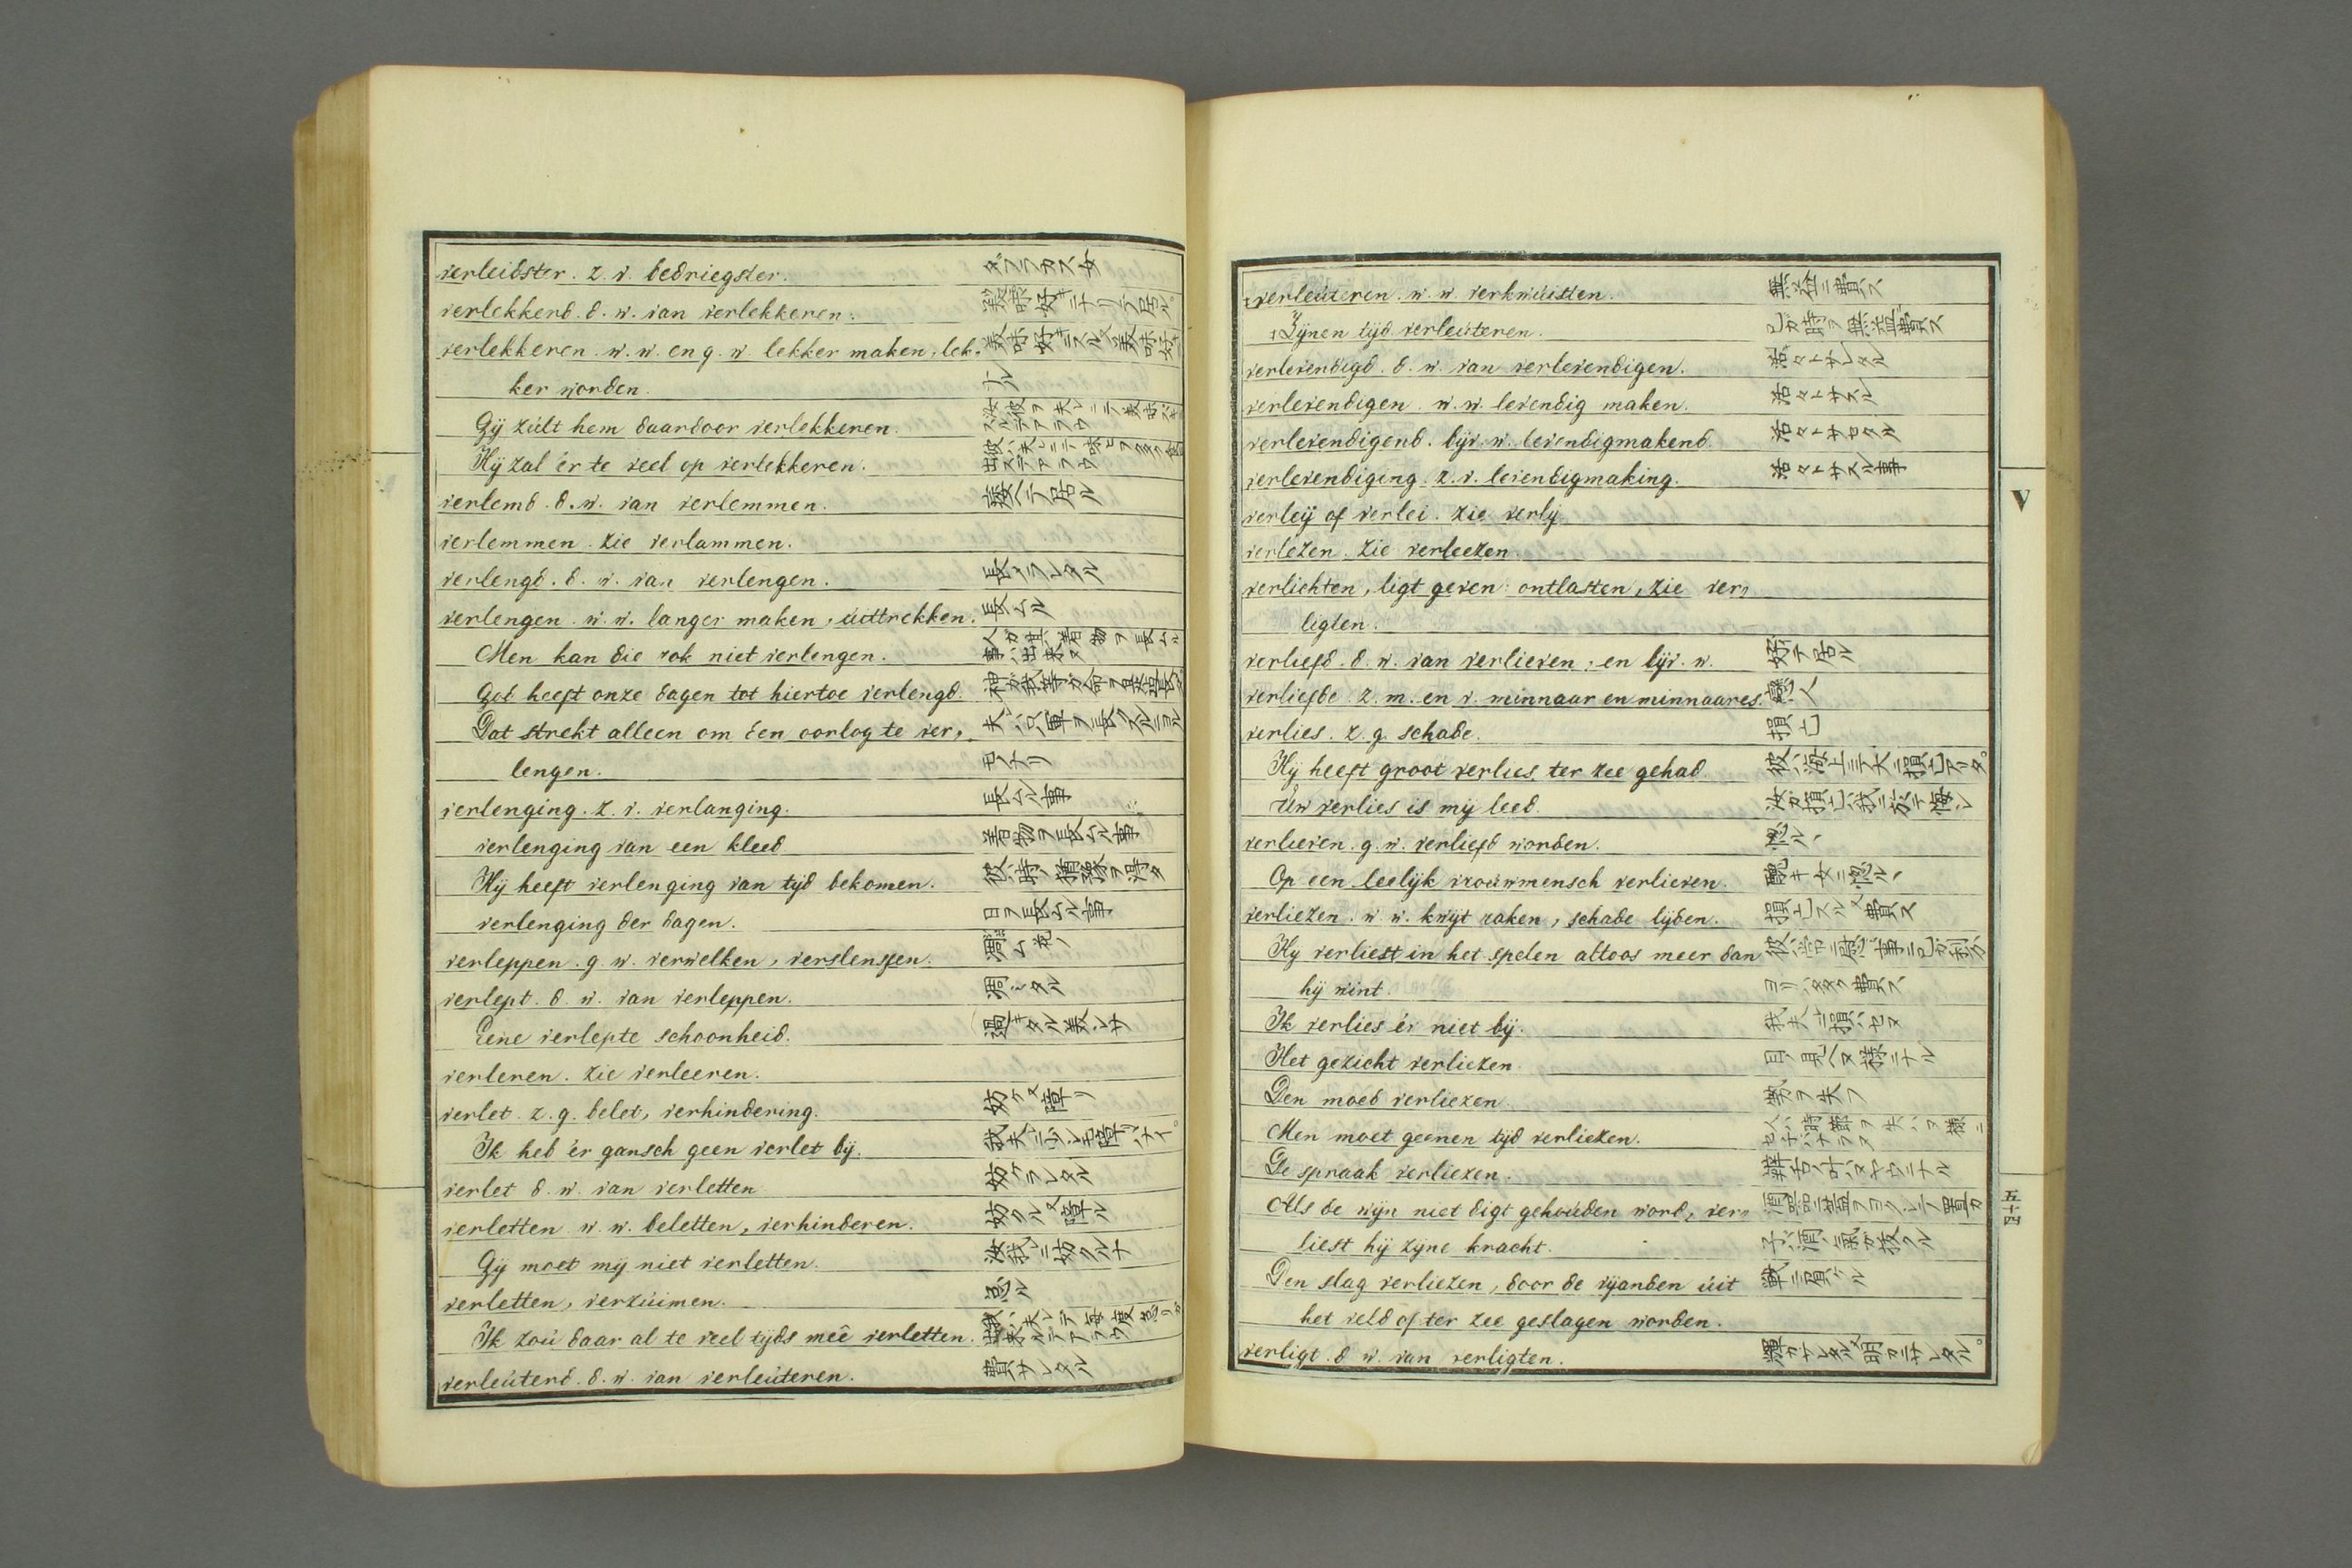 verleidster. z. v. bedriegster. ダマラカス女
verlekkerd. d. w. van verlekkeren. 美味好キニナリテ居ル。
verlekkeren. w. w. en g. w lekker maken, lek- 美味好キニスル又美味好ニ
ker worden. ナル
Gÿ zúlt hem daardoor verlekkeren.
Hÿ zal ér te veel op verlekkeren.
verlemd. d. w. van verlemmen. 痿ヘテ居ル
verlemmen. zie verlammen.
verlengd. d. w. van verlengen. 長メラレタル
verlengen. w. w. langer maken, úittrekken. 長ムル
Men kan die rok niet verlengen. 人ガ其着物ヲ長ムル事ハ出来ヌ
God heeft onze dagen tot hiertoe verlengd.
Dat strekt alleen om één oorlog te ver- 夫ハ只軍ヲ長クスルニヨル
lengen. モノナリ
verlenging. z. v. verlanging. 長ムル事
verlenging van een kleed 着物ヲ長ムル事
Hÿ heeft verlenging van tÿd bekomen. 彼ハ時ノ猶豫ヲ得タ
verlenging der dagen. 日ヲ長ムル事
verleppen. g. w. verwelken, verslensen. 凋ム花ノ
verlept. d. w. van verleppen. 凋ミタル
Eene verlepte schoonheid. 過キタル美シサ
verleren. zie verleeren.
verlet. z. g. belet, verhindering. 妨ケ又障リ
Ik heb ér gansch geen verlet bÿ. 我夫ニ少シモ障リハナイ。
verlet d. w. van verletten 妨ケラレタル
verletten w. w. beletten, verhinderen. 妨クル又障ル
Gÿ moet mÿ niet verletten. 汝我レニ妨クルナ
verletten, verzúimen. 怠ル
Ik zoú daar al te veel tÿds meê verletten.
verleúterd. d. w. van verleúteren. 費サレタル
verleúteren. w. w. verkwisten. 無益ニ費ス
Zÿnen tÿd verleúteren. 己ガ時ヲ無益ニ費ス
verlevendigd. d. w. van verlevendigen. 活々トサレタル
verlevendigen. w. w. levendig maken. 活々トサスル
verlevendigend. bÿv. w. levendigmakend. 活々トサセタル
verlevendiging. z. v. levendigmaking. 活々トサスル事
verleÿ of verlei. zie verlÿ
verlezen. zie verleezen.
verlichten, ligt geven: ontlasten, zie ver-
ligten.
verliefd. d. w. van verlieven; en bÿv. w. 好テ居ル
verliefde. z. m. en v. minnaar en minnaares. 戀人
verlies. z. g. schade. 損亡
Hÿ heeft groot verlies ter zee gehad. 彼ハ海上ニテ大ニ損亡アリタ。
Úw verlies is mÿ leed. 汝ガ損亡ハ我ニ於テ悔シ
verlieven. g. w. verliefd worden. 惚ル丶
Op een leelÿk vroúwmensch verlieven. 醜キ女ニ惚ル丶
verliezen. w. w. kwÿt raken, schade lÿden. 損亡スル又費ス
Hÿ verliest in het spelen altoos meer dan
hÿ wint. ヨリハ多ク費ス
Ik verlies ér niet bÿ. 我夫ニ損ハセヌ
Het gezicht verliezen. 目ノ見ヘヌ様ニナル
Den moed verliezen. 勢ヲ失フ
Men moet geenen tÿd verliezen. 人ハ時節ヲ失ハヌ様ニセ子バナラヌ
De spraak verliezen.
Als de wÿn niet digt gehoúden word, ver-
liest hÿ zÿne kracht. 子ハ酒ノ氣ガ抜クル
Den slag verliezen, door de vÿanden úit 戰ニ負ケル
het veld of ter zee geslagen worden.
verligt. d w. van verligten. 輝カサレタル又明ラニサレタル。
V
五十四